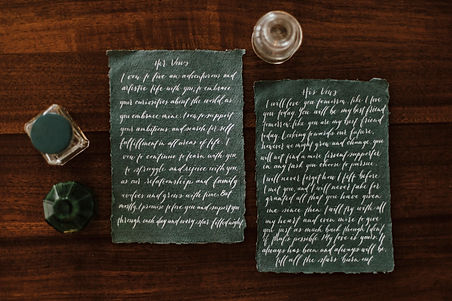 Her Vows
I vow to live an adventurous and
artistic life with you, to embrace
your curiosities about the world, as
you embrace mine. I vow to support
your ambitions and search for self
fulfillment in all areas of life. I
vow to continue to learn with you
to struggle and rejoice with you
as our relationship and family
evolves and grows with time. But
mostly, I promise to love you and support you
through each day and every star filled night
His Vows
I will love you tomorrow like I love
you today. You will be my best friend
tomorrow, like you are my best friend
today. Looking towards our future,
however we might grow and change, you
will not find a more fervent supporter
in any task you choose to pursue.
I will never forget how I felt before
I met you, and I will never take for
granted all that you have given
me since then. I will try with all
my heart and even more to give
you just as much back though I don't
if that's possible. My love is yours. It
always has been and always will be
till all the stars burn out